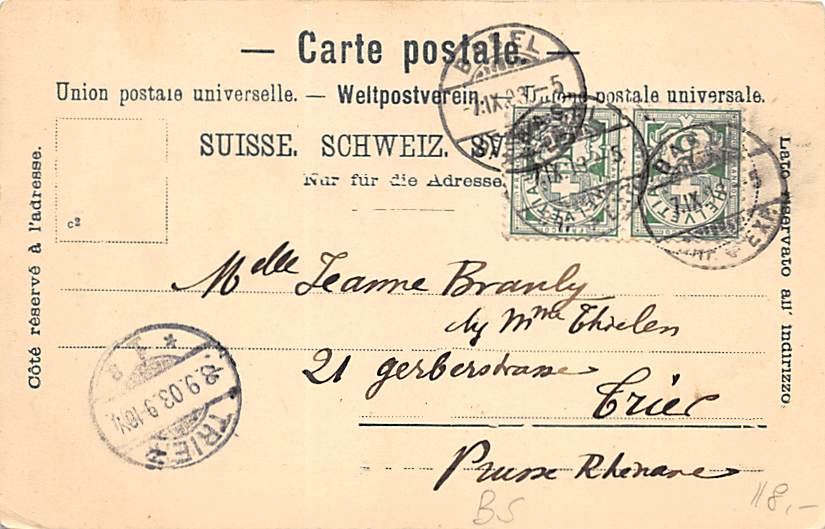 — Carte postale. —
Union postale universelle. — Weltpostverein. — Unione postale universale.
SUISSE. SCHWEIZ.
Nur für die Adresse.
Côté réservé à l'adresse.
Lato riservato all' indirizzo.
c²
BASEL
7.IX.03.-5
HELVETIA
HELVETIA
Melle Jeanne Branly
chez Mme Thielen
21 gerberstrasse
Trier
Prusse Rhénane
TRIER
8.9.03.9-10V.
BS
118,-